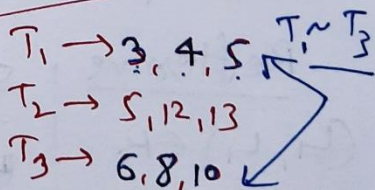 T₁ → 3, 4, 5 T₁ ~ T₃
T₂ → 5, 12, 13
T₃ → 6, 8, 10